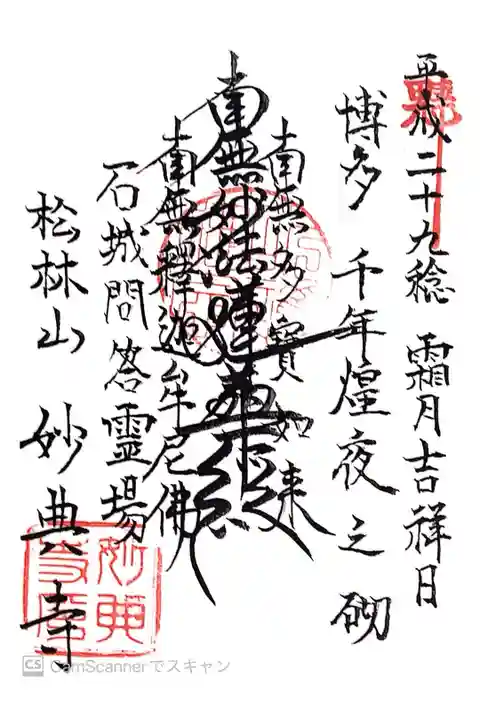 平成二十九稔 霜月吉祥日
博多 千年煌夜之砌
南無多寳如来
南無妙法蓮華経
南無釋迦牟尼佛
石城問答霊場
松林山 妙典寺
妙典
寺
CS CamScannerでスキャン